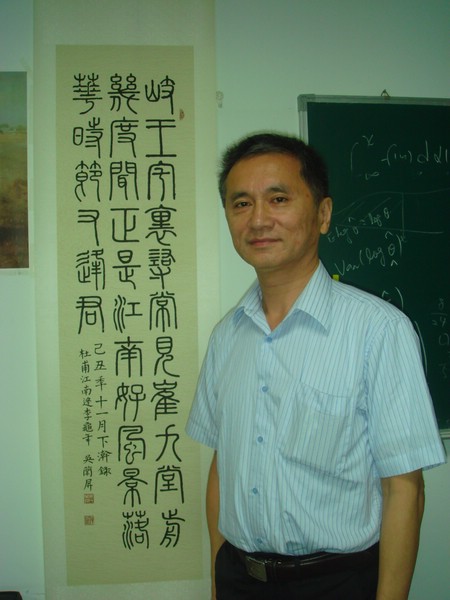 岐王宅裏尋常見崔九堂前
幾度聞正是江南好風景落
華時節又逢君
己丑年十一月下澣錄
杜甫江南逢李龜年 吳
Var(log θ̂)